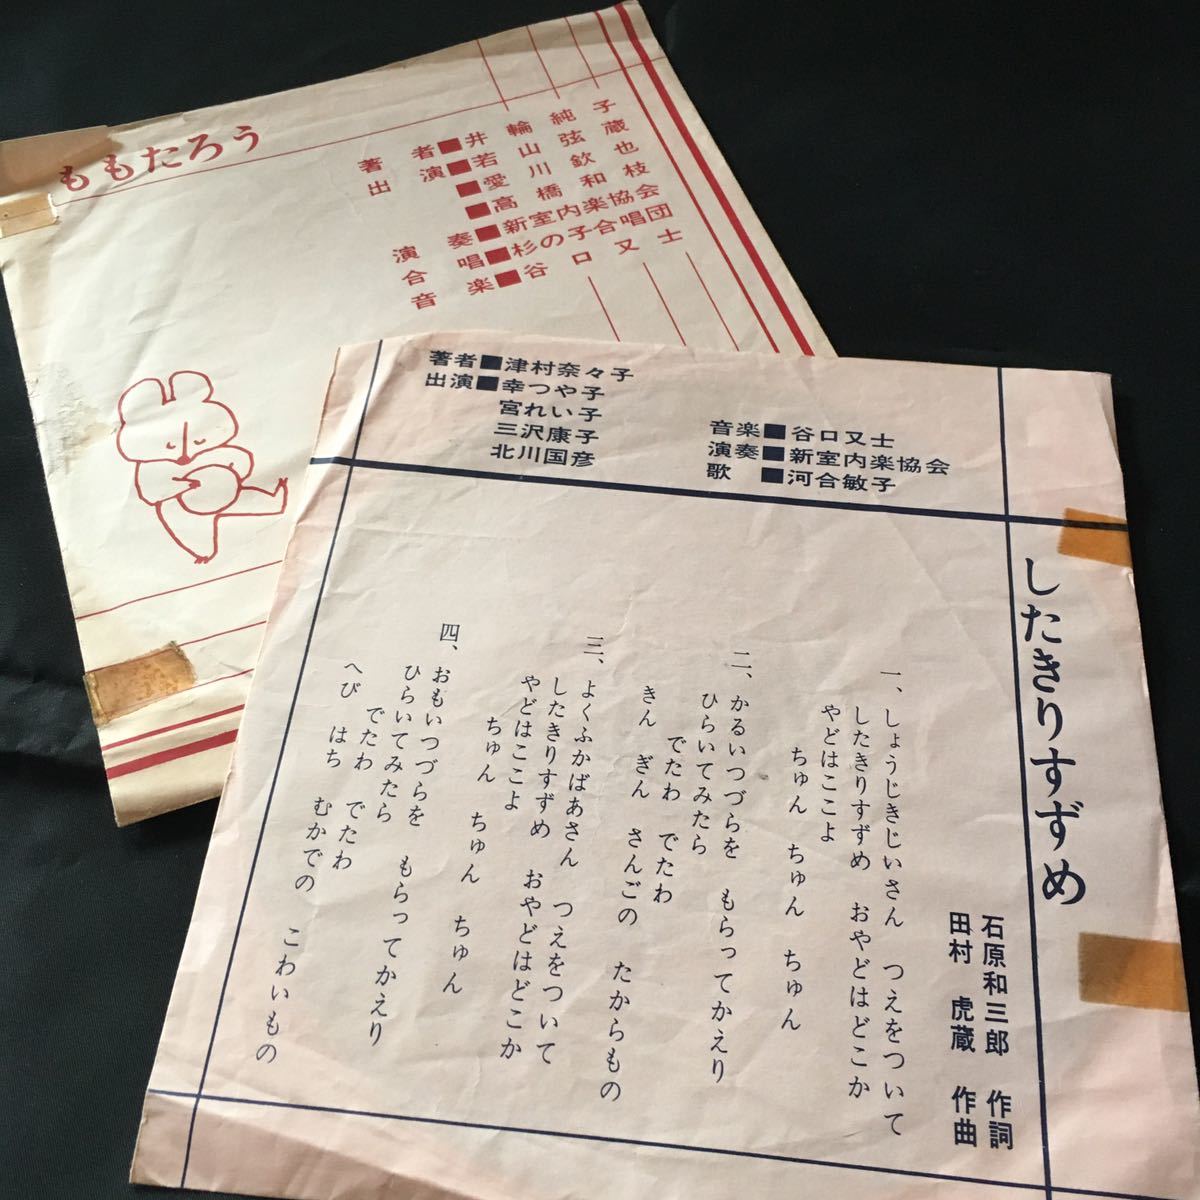 ももたろう
著者■井輪純子
出演■若山弦蔵
■愛川欽也
■高橋和枝
演奏■新室内楽協会
合唱■杉の子合唱団
音楽■谷口又士
著者■津村奈々子
出演■幸つや子
宮れい子
三沢康子
北川国彦
音楽■谷口又士
演奏■新室内楽協会
歌■河合敏子
したきりすずめ
石原和三郎 作詞
田村 虎蔵 作曲
一、しょうじきじいさん つえをついて
したきりすずめ おやどはどこか
やどはここよ
ちゅん ちゅん ちゅん
二、かるいつづらを もらってかえり
ひらいてみたら
でたわ でたわ
きん ぎん さんごの たからもの
三、よくふかばあさん つえをついて
したきりすずめ おやどはどこか
やどはここよ
ちゅん ちゅん ちゅん
四、おもいつづらを もらってかえり
ひらいてみたら
でたわ でたわ
へび はち むかでの こわいもの